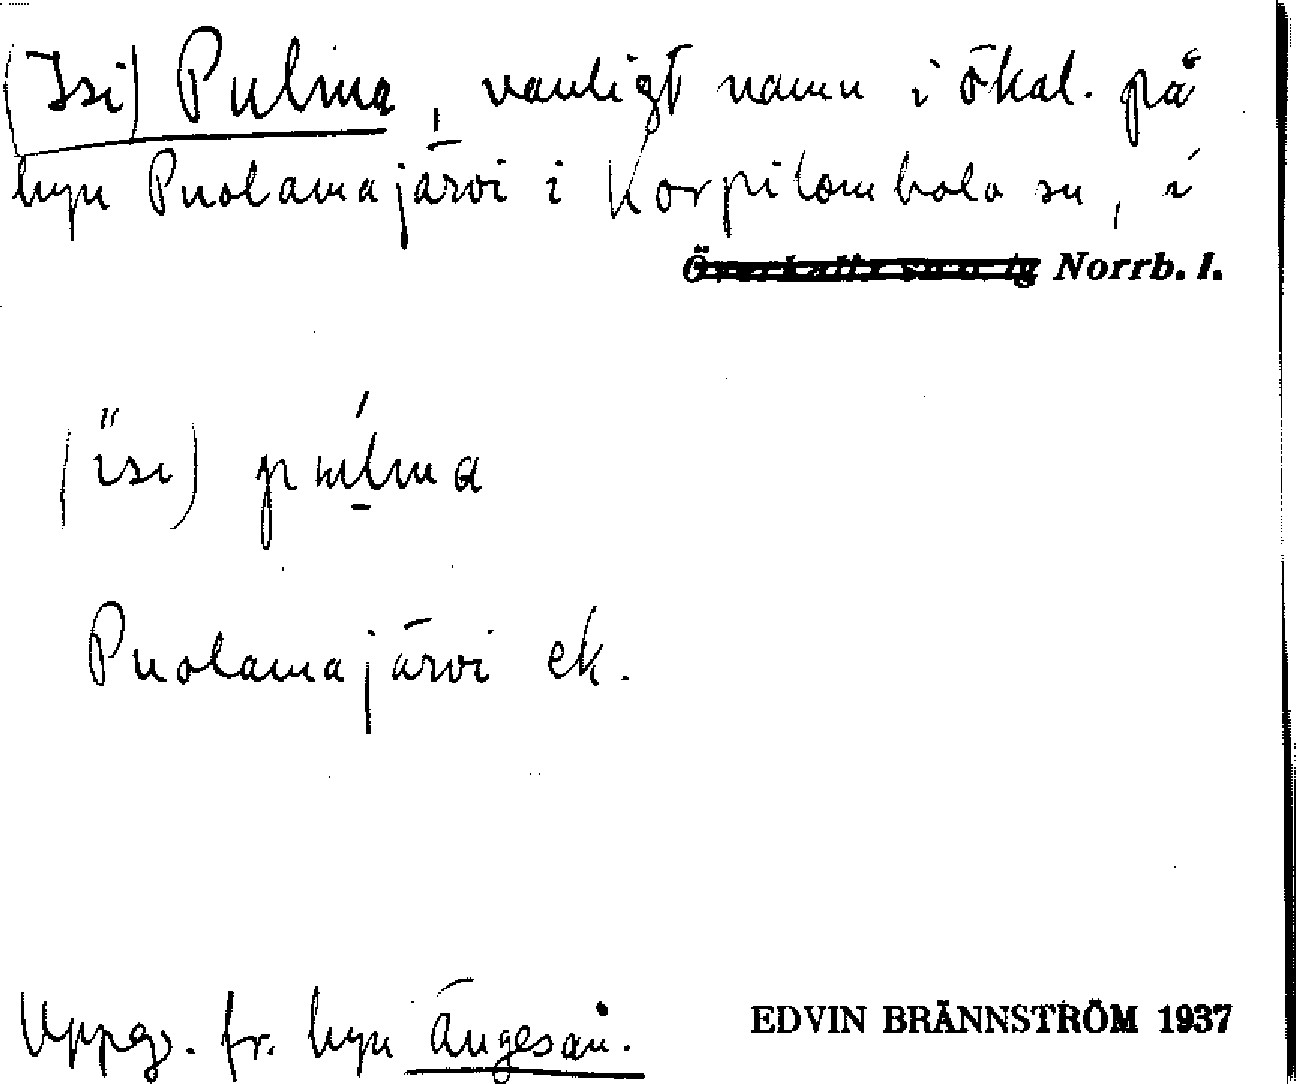 (Isi) Pulma, vanligt namn i ökal. på
byn Puolamajärvi i Korpilombolo sn, i
Norrb. l.
(isi) pulma
Puolamajärvi ek.
Uppg. fr. byn Ängesån.
EDVIN BRÄNNSTRÖM 1937